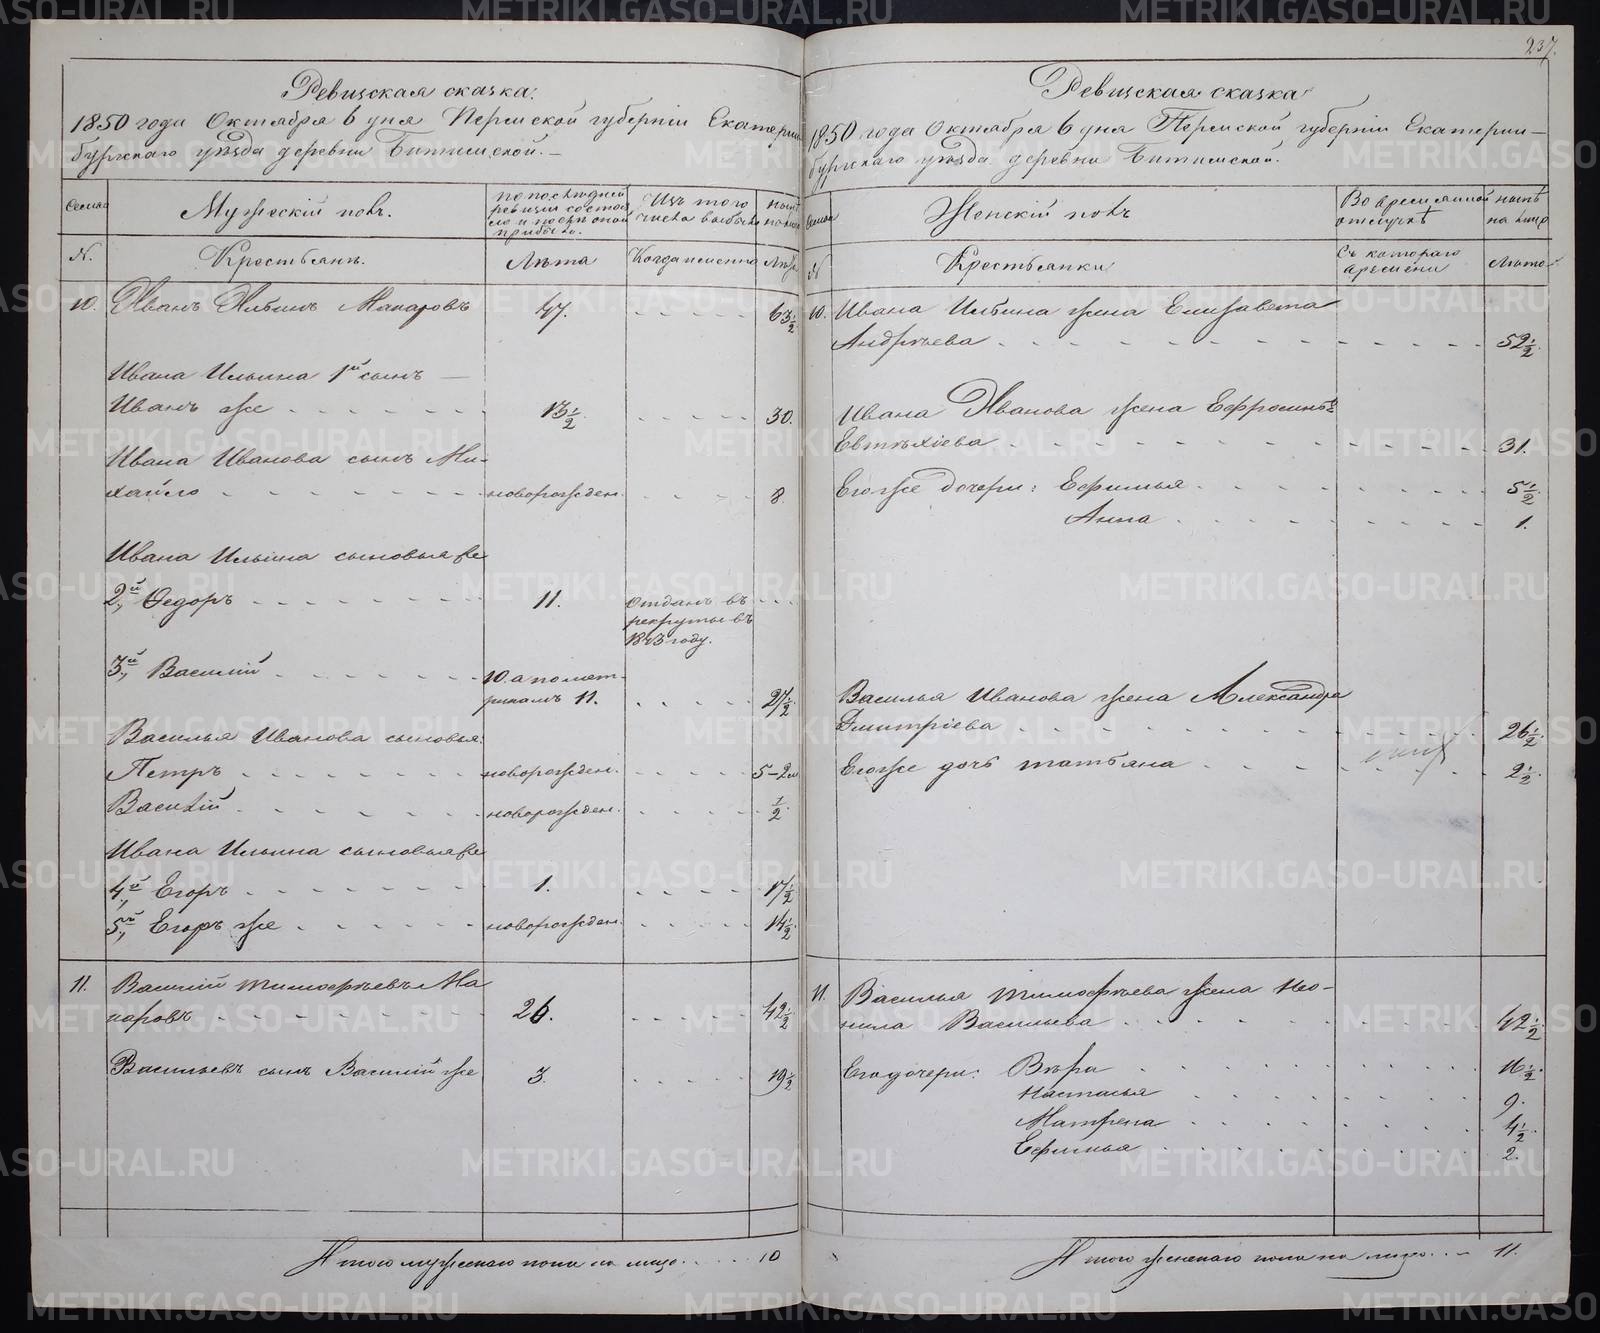 237.
Ревизская сказка.
1850 года Октября 6 дня Пермской губернiи Екатерин-
бургскаго уѣзда деревни Битимской.
Семьи
Мужескiй полъ.
По последней
ревизiи состоя
ло и после оной
прибыло.
Изъ того
числа выбыло
нынѣ
на лицо
N.
Крестьянъ.
Лѣта
Когда именно
Лѣта
10. Иванъ Ильинъ Макаровъ 47. 63½
Ивана Ильина 1й сынъ
Иванъ же 13½ 30.
Ивана Иванова сынъ Ми-
хайло новорожден. 8
Ивана Ильина сыновья же
2й Ѳедоръ 11. Отданъ въ
рекруты въ
1843 году.
3й Василiй 10. а по мет-
рикамъ 11. 27½
Василья Иванова сыновья:
Петръ новорожден. 5-2м
Василiй новорожден. ½
Ивана Ильина сыновья же
4й Егоръ 1. 17½
5й Егоръ же новорожден. 14½
11. Василiй Тимофѣевъ Ма
каровъ 26. 42½
Васильевъ сынъ Василiй же 3. 19½
Итого мужескаго пола на лицо 10
Ревизская сказка
1850 года Октября 6 дня Пермской губернiи Екатерин-
бургскаго уѣзда деревни Битимской.
Семьи
Женскiй полъ
Во временной
отлучкѣ
нынѣ
на лицо
N
Крестьянки
Съ котораго
времени
Лѣта
10. Ивана Ильина жена Елизавета
Андрѣева 52½
Ивана Иванова жена Ефросинья
Евтѣхiева 31.
Егоже дочери: Ефимья 5½
Анна 1.
Василья Иванова жена Александра
Дмитрiева 26½
Егоже дочь Татьяна 2½
11. Василья Тимофѣева жена Нео-
нила Васильева 42½
Его дочери: Вѣра 16½
Настасья 9.
Матрена 4½
Ефимья 2.
Итого женскаго пола на лицо 11.
METRIKI.GASO-URAL.RU